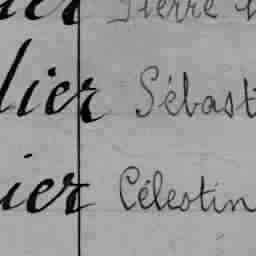 ier Pierre
lier Sébast
ier Célestin